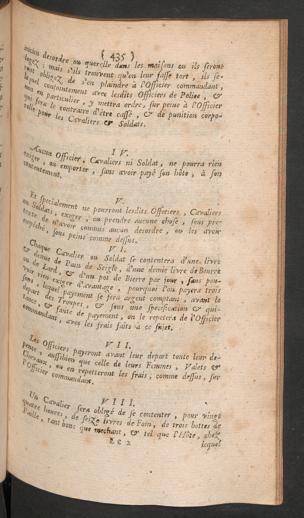 ( 435 )
aucun desordre ou querelle dans les maisons ou ils seront
logez ; mais s'ils trouvent qu'on leur fasse tort, ils se-
ront obligez de s'en plaindre à l'Officier commandant,
lequel conjointement avec lesdits Officiers de Police, &
non en particulier, y mettra ordre, sur peine à l'Officier
qui sera le contraire d'être cassé, & de punition corpo-
relle pour les Cavaliers & Soldats.
I V.
Aucun Officier, Cavaliers ni Soldat, ne pourra rien
exiger, ou emporter, sans avoir payé son hôte, à son
contentement.
V.
Et specialement ne pourront lesdits Officiers, Cavaliers
ou Soldats, exiger, ou prendre aucune chose, sous pre-
texte de n'avoir commis aucun desordre, ou les avoir
empêché, sous peine comme dessus.
V I.
Chaque Cavalier ou Soldat se contentera d'une livre
& demie de Pain de Seigle, d'une demie livre de Beurre
ou de Lard, & d'un pot de Bierre par jour, sans pou-
voir rien exiger d'avantage, pourquoi l'on payera trois
sous, lequel payement se fera argent comptant, avant le
depart des Troupes, & sous une specification & quit-
tance, & faute de payement, on le repetera de l'Officier
commandant, avec les frais faits à ce sujet.
V I I.
Les Officiers payeront avant leur depart toute leur de-
pense, aussibien que celle de leurs Femmes, Valets &
Chevaux, ou en repetteront les frais, comme dessus, sur
l'Officier commandant.
V I I I.
Un Cavalier sera obligé de se contenter, pour vingt
quatre heures, de seize livres de Foin, de trois bottes de
Paille, tant bons que mechant, & tel que l'Hôte, chez
lequel